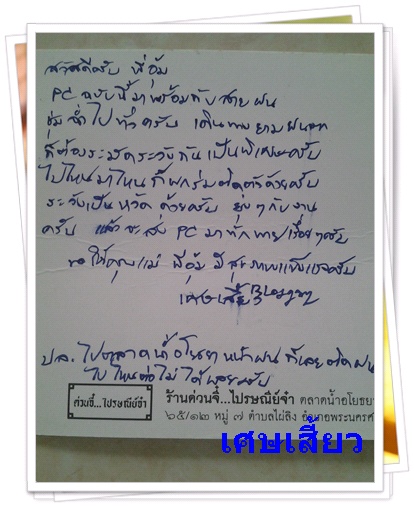 สวัสดีครับ พี่อุ้ม
PC ฉบับนี้มาพร้อมกับสายฝน
ชุ่มฉ่ำไปทั่วครับ เดินทางยามฝนตก
ก็ต้องระมัดระวังกันเป็นพิเศษครับ
ไปไหนมาไหนก็พกร่มติดตัวด้วยครับ
ระวังเป็นหวัดด้วยครับ ยุ่งๆกับงาน
ครับ แล้วจะส่ง PC มาทักทายเรื่อยๆครับ
ขอให้คุณแม่ พี่อุ้ม มีสุขภาพแข็งแรงครับ
เศษเสี้ยว
ป.ล. ไปตลาดน้ำอโยธยา หน้าฝน ก็เลยติดฝน
ไปไหนต่อไม่ได้เลยครับ
ด่วนจี๋...ไปรษณีย์จ๋า
ร้านด่วนจี๋...ไปรษณีย์จ๋า ตลาดน้ำอโยธยา
๖๕/๑๒ หมู่ ๗ ตำบลไผ่ลิง อำเภอพระนครศ
เศษเสี้ยว